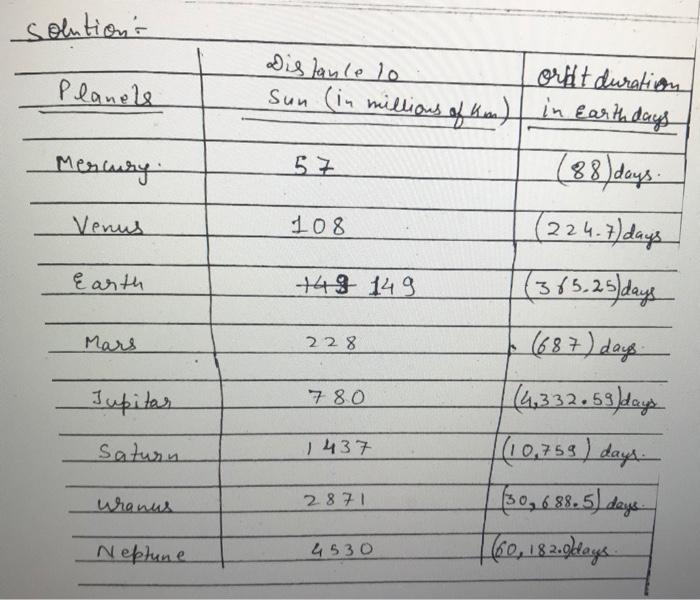 Solution:-
Planets Distance to Sun (in millions of Km) orbit duration in Earth days
Mercury. 57 (88)days.
Venus 108 (224.7)days
Earth 149 149 (365.25)days
Mars 228 (687) days.
Jupitar 780 (4,332.59)days
Saturn 1437 (10,759) days.
Uranus 2871 (30,688.5) days.
Neptune 4530 (60,182.0)days.